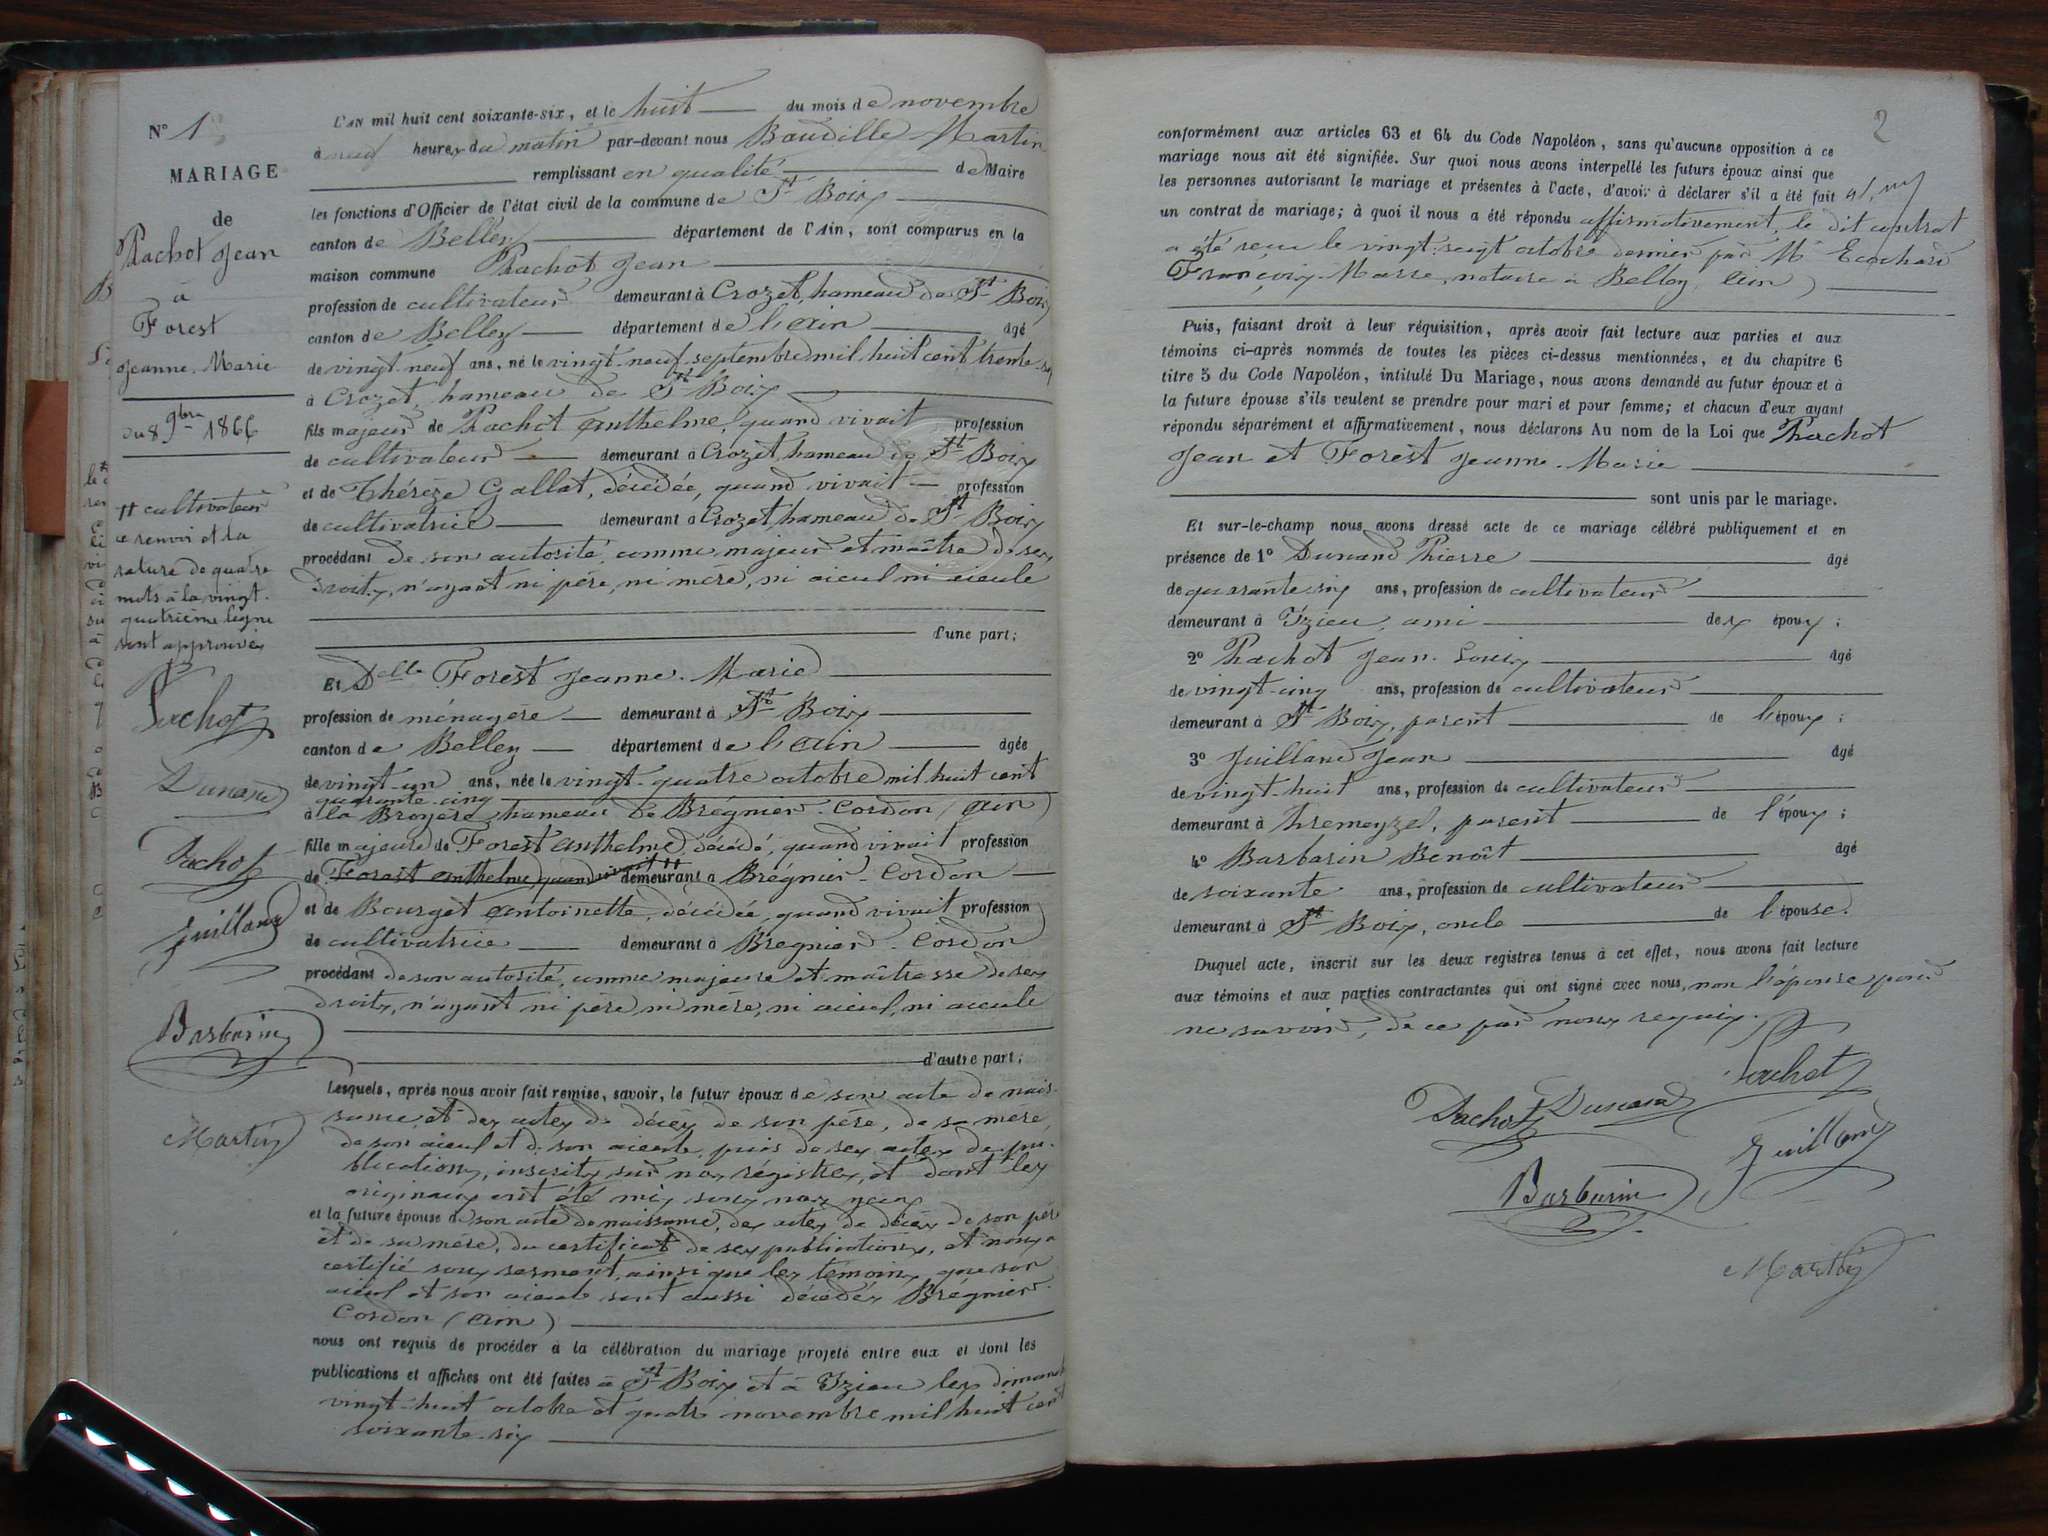 N° 1
MARIAGE
de
Pachot Jean
à
Forest
Jeanne-Marie
du 8 9bre 1866
cultivateur
ce renvoi et la
rature de quatre
mots à la vingt-
quatrième ligne
sont approuvés
Pachot
Dunand
Pachot
Juilland
Barbarin
Martin
L'AN mil huit cent soixante-six, et le huit du mois de novembre
à neuf heures du matin par-devant nous Baudille Martin
remplissant en qualité de Maire
les fonctions d'Officier de l'état civil de la commune de St Bois
canton de Belley département de l'Ain, sont comparus en la
maison commune Pachot Jean
profession de cultivateur demeurant à Crozet, hameau de St Bois
canton de Belley département de l'ain âgé
de vingt-neuf ans, né le vingt-neuf septembre mil huit cent trente-six
à Crozet, hameau de St Bois
fils majeur de Pachot Anthelme, quand vivait profession
de cultivateur demeurant à Crozet, hameau de St Bois
et de Thérèze Gallat, décédée, quand vivait profession
de cultivatrice demeurant à Crozet, hameau de St Bois
procédant de son autorité comme majeur et maître de ses
droits, n'ayant ni père, ni mère, ni aieul ni aieule
d'une part;
Et Delle Forest Jeanne-Marie
profession de ménagère demeurant à St Bois
canton de Belley département de l'ain âgée
de vingt-un ans, née le vingt-quatre octobre mil huit cent
quarante-cinq
à la Broyère hameau de Brégnier-Cordon (Ain)
fille majeure de Forest Anthelme décédé, quand vivait profession
de Forest Anthelme quand vivait demeurant à Brégnier-Cordon
et de Bourget Antoinette, décédée, quand vivait profession
de cultivatrice demeurant à Brégnier-Cordon
procédant de son autorité, comme majeure et maîtresse de ses
droits, n'ayant ni père ni mère, ni aieul, ni aieule
d'autre part;
Lesquels, après nous avoir fait remise, savoir, le futur époux de son acte de nais-
sance, et des actes de décès de son père, de sa mère
de son aieul et de son aieule, puis de ses actes de pu-
blications, inscrits sur nos régistres, et dont les
originaux ont été mis sous nos yeux
et la future épouse de son acte de naissance, des actes de décès de son père
et de sa mère, du certificat de ses publications, et nous a
certifié sous serment, ainsi que les témoins, que son
aieul et son aieule sont aussi décédés Brégnier-
Cordon (Ain)
nous ont requis de procéder à la célébration du mariage projeté entre eux et dont les
publications et affiches ont été faites à St Bois et à Izieu les dimanches
vingt-huit octobre et quatre novembre mil huit cent
soixante-six
2
conformément aux articles 63 et 64 du Code Napoléon, sans qu'aucune opposition à ce
mariage nous ait été signifiée. Sur quoi nous avons interpellé les futurs époux ainsi que
les personnes autorisant le mariage et présentes à l'acte, d'avoir à déclarer s'il a été fait
un contrat de mariage; à quoi il nous a été répondu affirmativement, le dit contrat
a été reçu le vingt-sept octobre dernier par Me Ecochard
François-Marie, notaire à Belley, (Ain)
Puis, faisant droit à leur réquisition, après avoir fait lecture aux parties et aux
témoins ci-après nommés de toutes les pièces ci-dessus mentionnées, et du chapitre 6
titre 5 du Code Napoléon, intitulé Du Mariage, nous avons demandé au futur époux et à
la future épouse s'ils veulent se prendre pour mari et pour femme; et chacun d'eux ayant
répondu séparément et affirmativement, nous déclarons Au nom de la Loi que Pachot
Jean et Forest Jeanne-Marie
sont unis par le mariage.
Et sur-le-champ nous avons dressé acte de ce mariage célébré publiquement et en
présence de 1° Dunand Pierre âgé
de quarante-six ans, profession de cultivateur
demeurant à Izieu, ami des époux;
2° Pachot Jean-Louis âgé
de vingt-cinq ans, profession de cultivateur
demeurant à St Bois, parent de l'époux;
3° Juilland Jean âgé
de vingt-huit ans, profession de cultivateur
demeurant à Premeyzel, parent de l'époux;
4° Barbarin Benoît âgé
de soixante ans, profession de cultivateur
demeurant à St Bois, oncle de l'épouse.
Duquel acte, inscrit sur les deux registres tenus à cet effet, nous avons fait lecture
aux témoins et aux parties contractantes qui ont signé avec nous, non l'épouse pour
ne savoir, de ce par nous requis.
Pachot
Pachot Dunand
Juilland
Barbarin
Martin